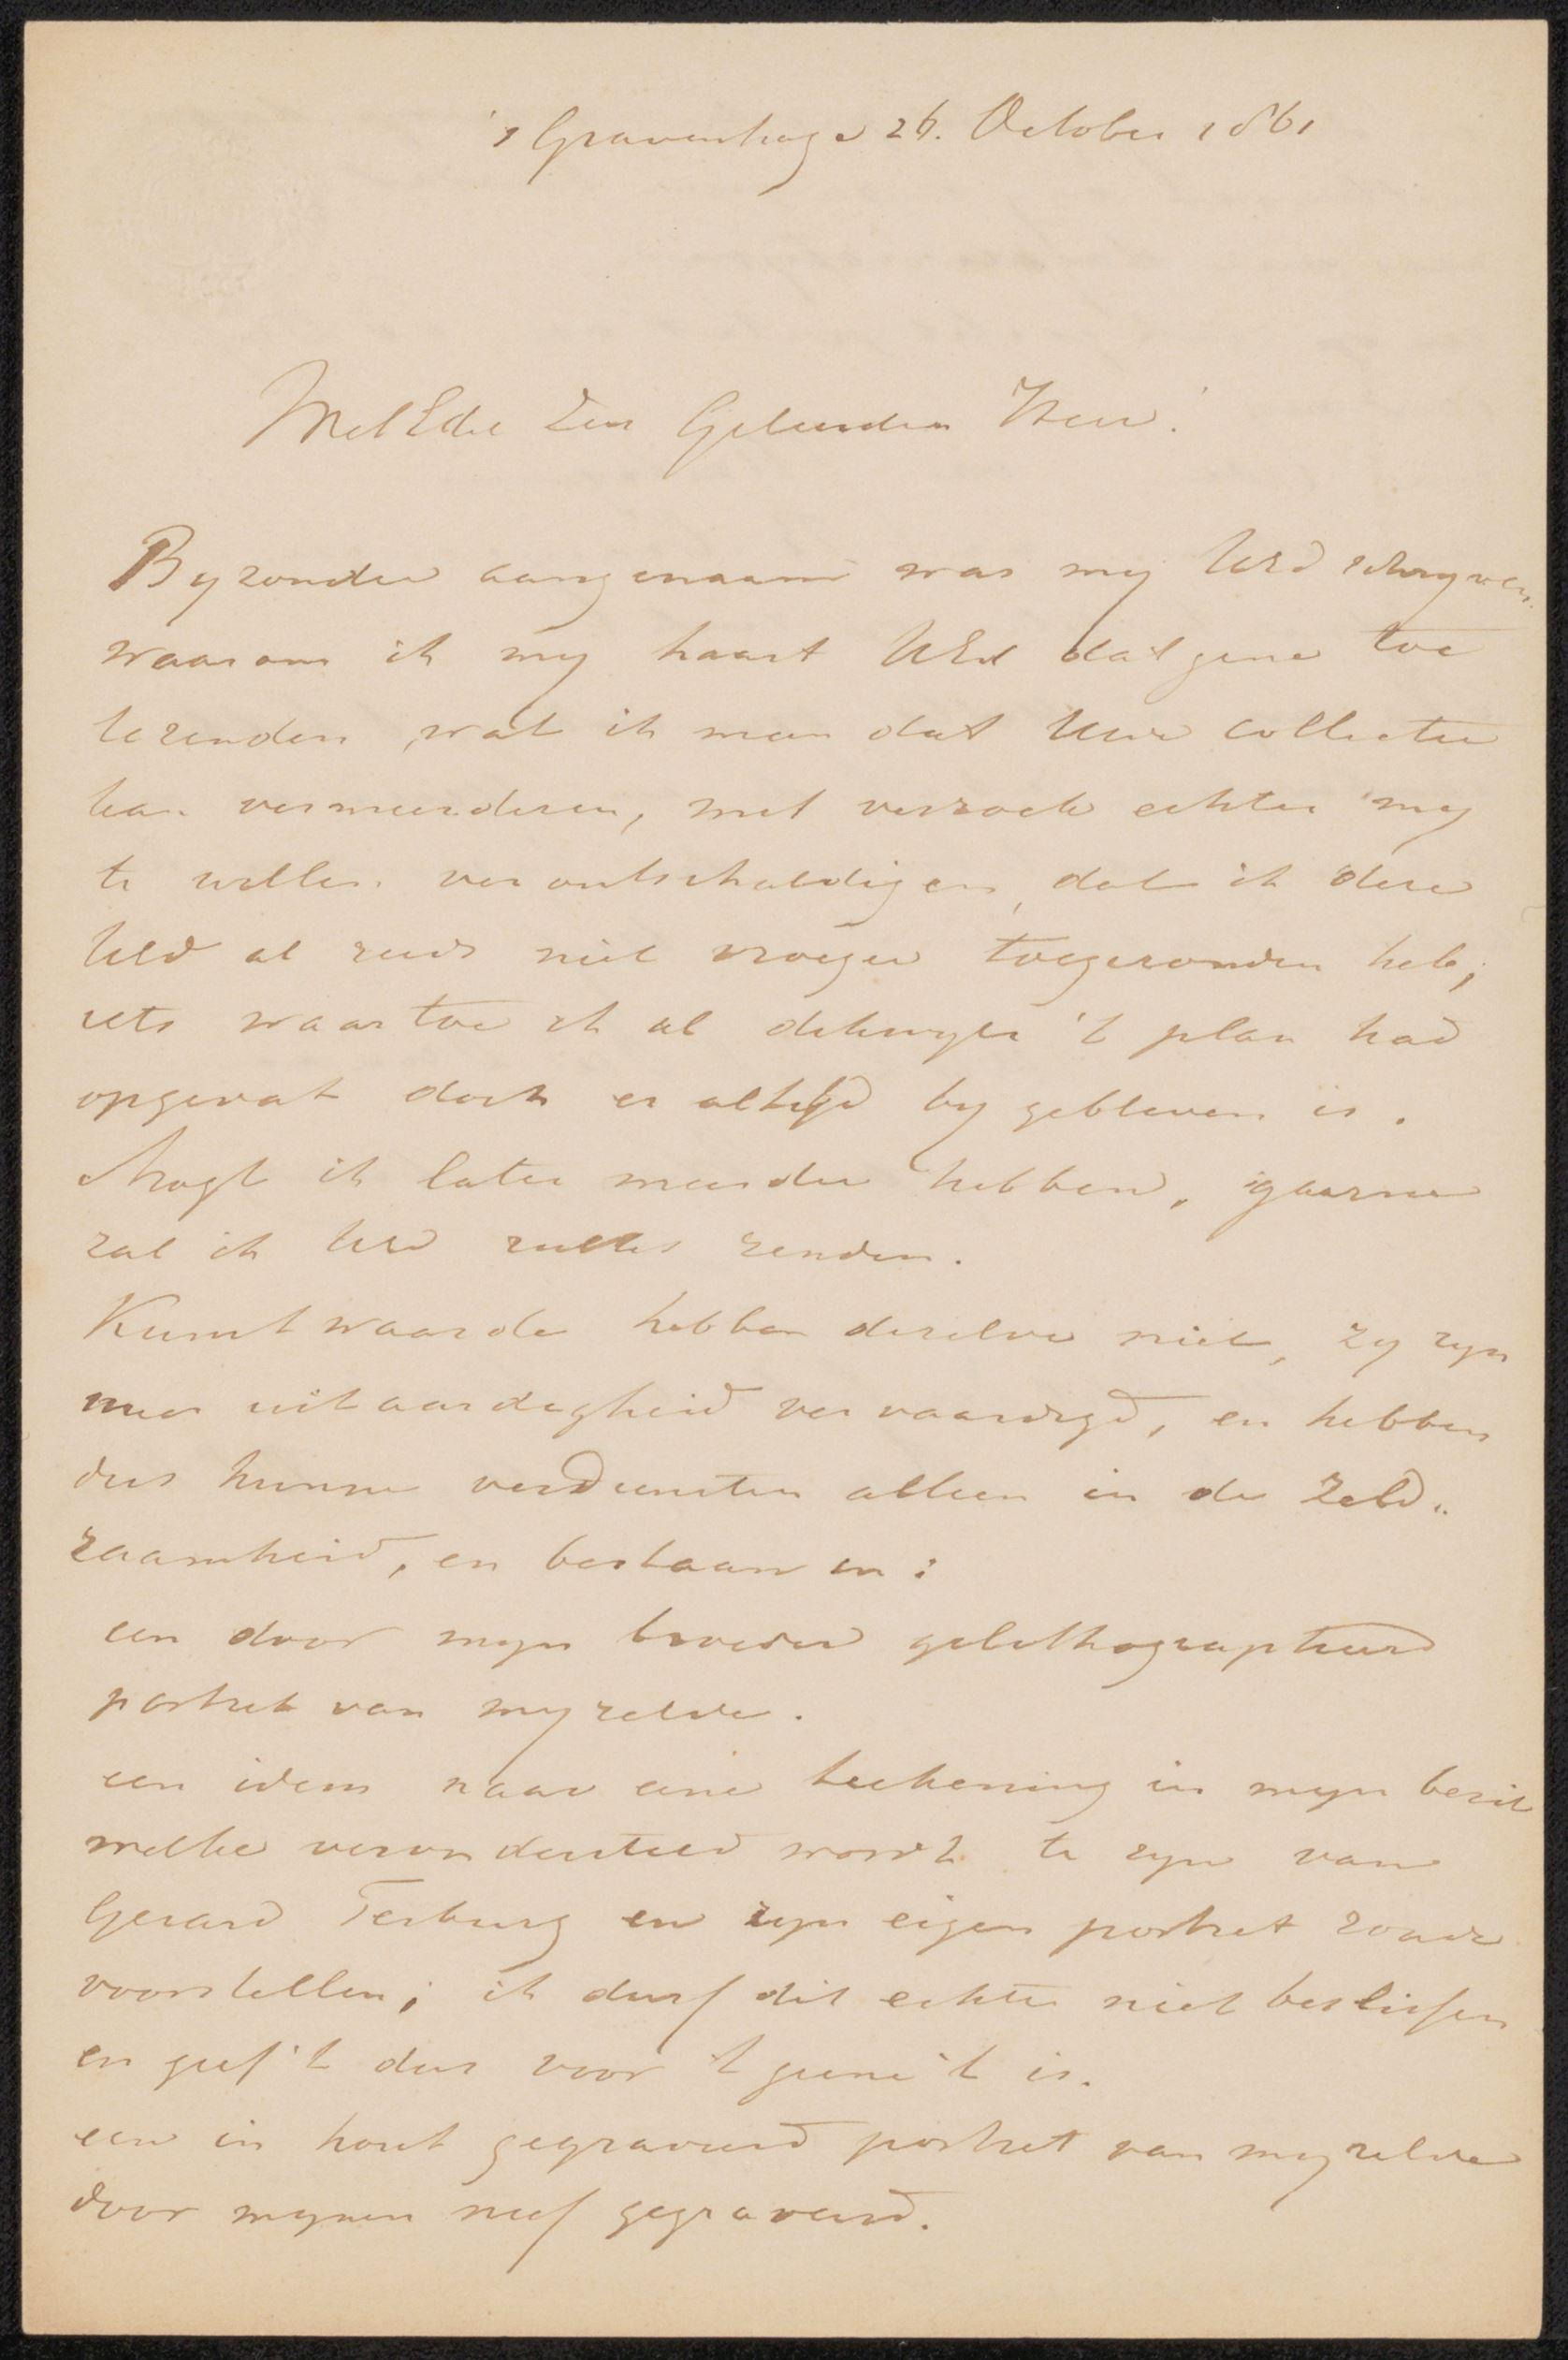 's Gravenhage 26. October 1861
WelEdele Zeer Geleerden Heer!
Byzonder aangenaam was my UEd schryven.
waarom ik my haast UEd datgene toe
tezenden, wat ik meen dat Uwe collectie
kan vermeerderen, met verzoek echter my
te willen verontschuldigen, dat ik deze
UEd al reeds niet vroeger toegezonden heb;
iets waartoe ik al dikwyls 't plan had
opgevat doch er altyd by gebleven is.
Mogt ik later meerder hebben, gaarne
zal ik UEd zulks zenden.
Kunstwaarde hebben dezelve niet, zy zyn
meer uit aardigheid vervaardigd, en hebben
dus hunne verdiensten alleen in de Zeld„
zaamheid, en bestaan in:
een door myn broeder gelithographeerd
portret van myzelve.
een idem naar eene teekening in myn bezit
welke verondersteld wordt te zyn van
Gerard Terburg en zyn eigen portret zoude
voorstellen; ik durf dit echter niet beslissen
en geef 't dus voor 't geene 't is.
een in hout gegraveerd portret van myzelve
door mynen neef gegraveerd.